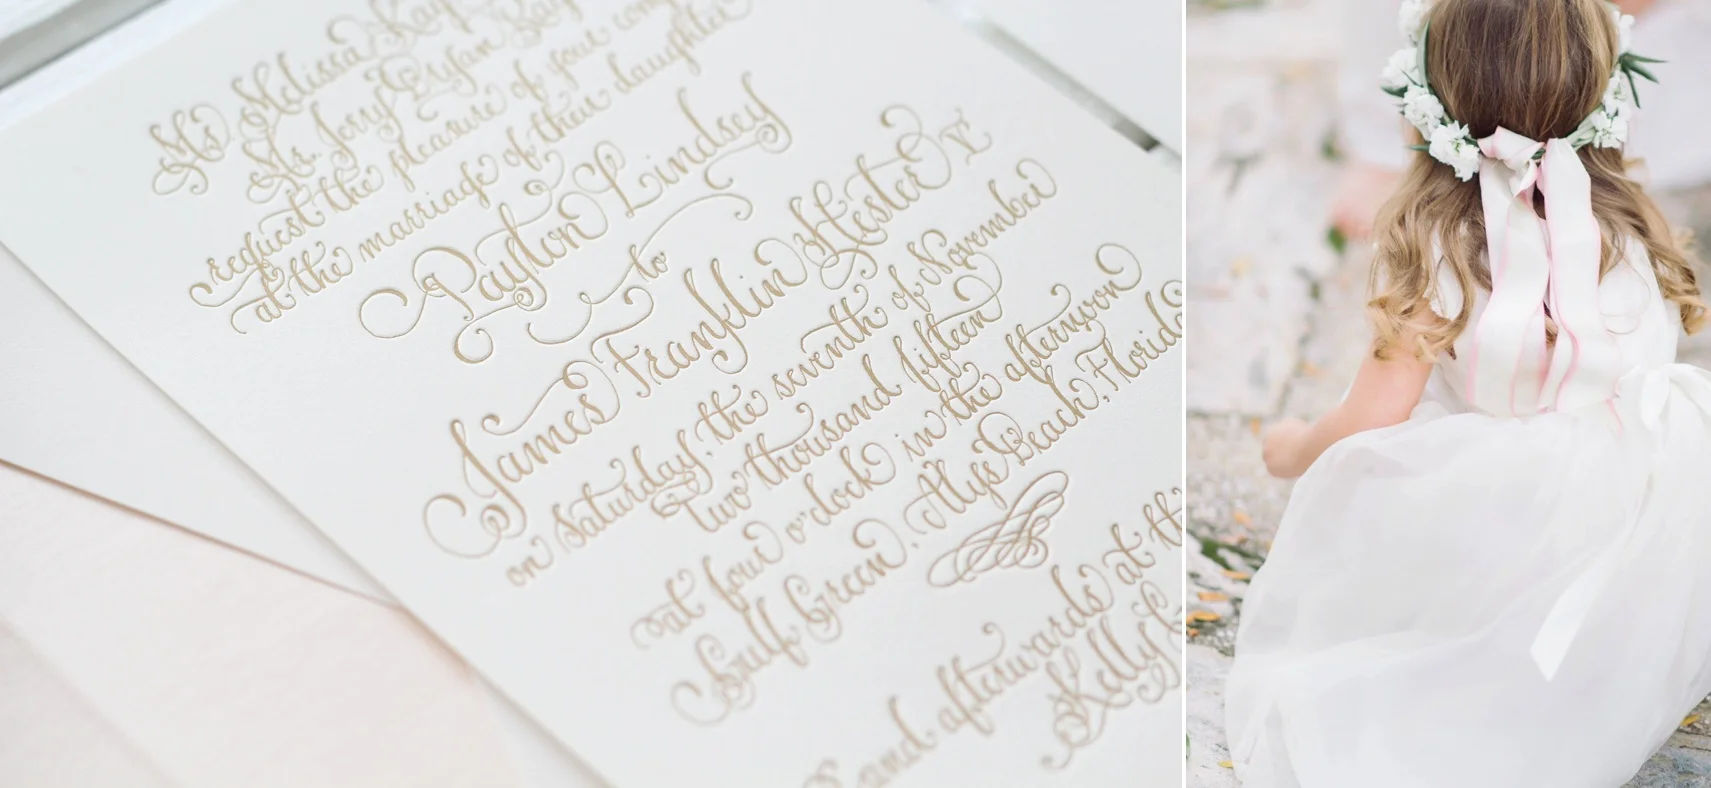 Ms. Melissa Kay
Mr. Jerry Ray
request the pleasure of your
at the marriage of their daughter
Payton Lindsey
to
James Franklin Hester V
on Saturday, the seventh of November
two thousand fifteen
at four o'clock in the afternoon
Gulf Green, Alys Beach, Florida
and afterwards at
Kelly